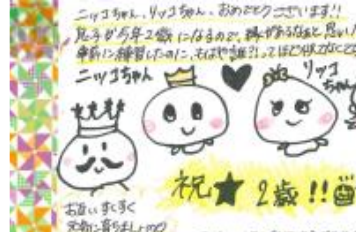 ニッコちゃん、リッコちゃん、おめでとうございます!!
息子が今年2歳になるので、縁があるなぁと思い
事前に練習したのに、もはや誰?!ってほど
ニッコちゃん
リッコ
ちゃん
祝★2歳!!
お互いすくすく
元気に育ちましょ